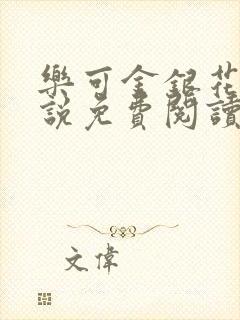 樂可金銀花
說免費閱讀
文偉